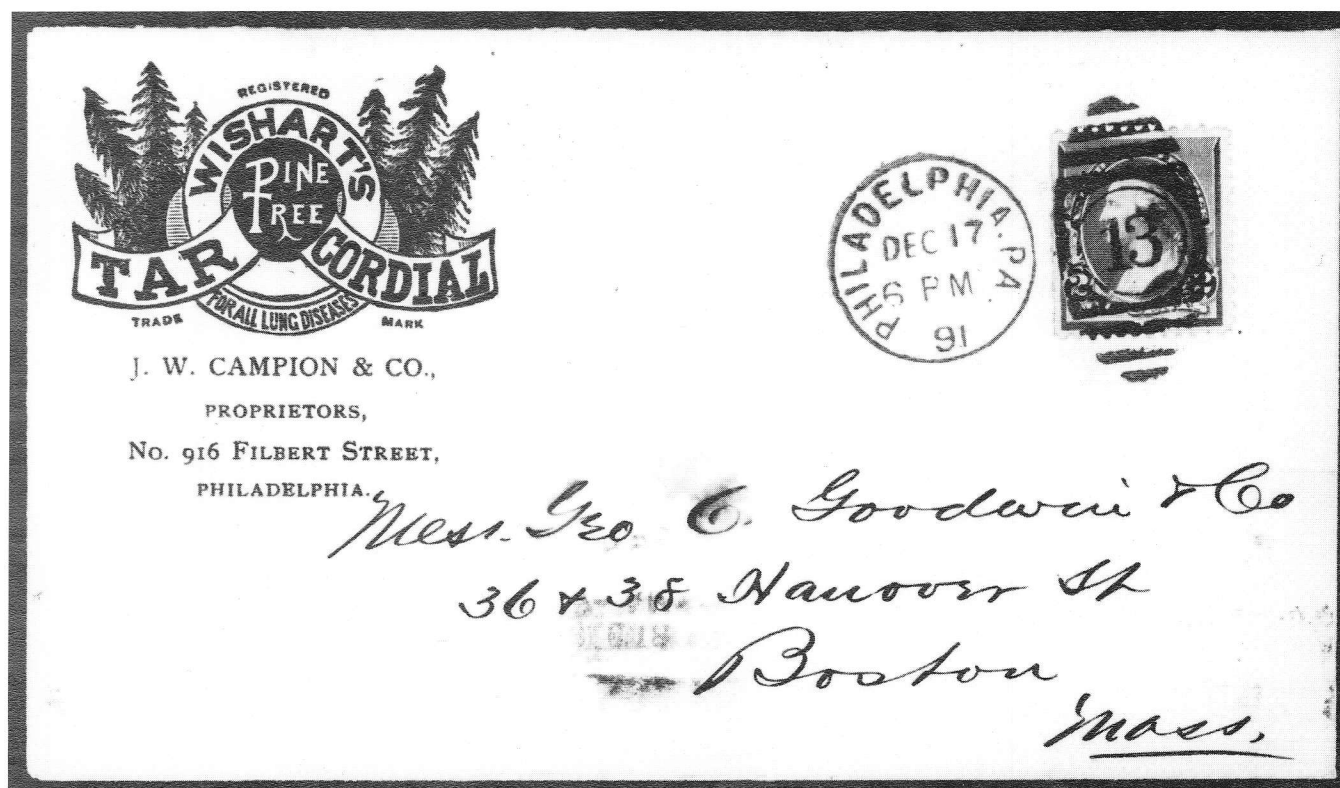 REGISTERED
WISHART'S
PINE
TREE
TAR CORDIAL
FOR ALL LUNG DISEASES
TRADE MARK
J. W. CAMPION & CO.,
PROPRIETORS,
No. 916 FILBERT STREET,
PHILADELPHIA.
PHILADELPHIA. PA
DEC 17
6 PM
91
13
Mess. Geo C. Goodwin & Co
36 & 38 Hanover St
Boston
Mass.